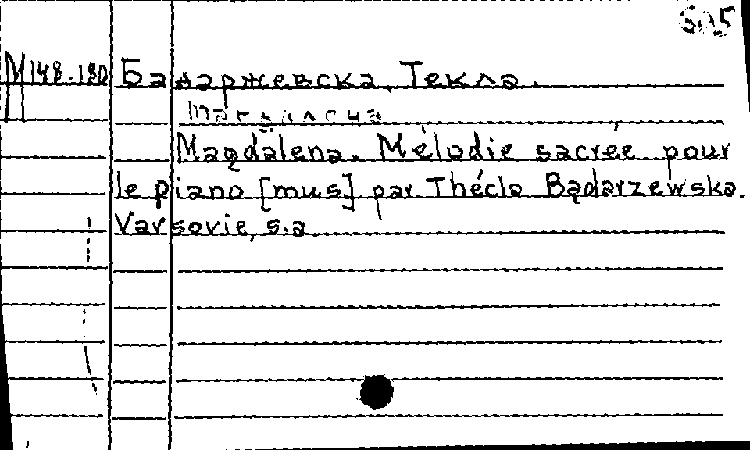 505
М148.180 Бадаржевска, Текла.
Магдалена
Magdalena. Mélodie sacrée pour
le piano [mus] par Thécla Bądarzewska.
Varsovie, s.a